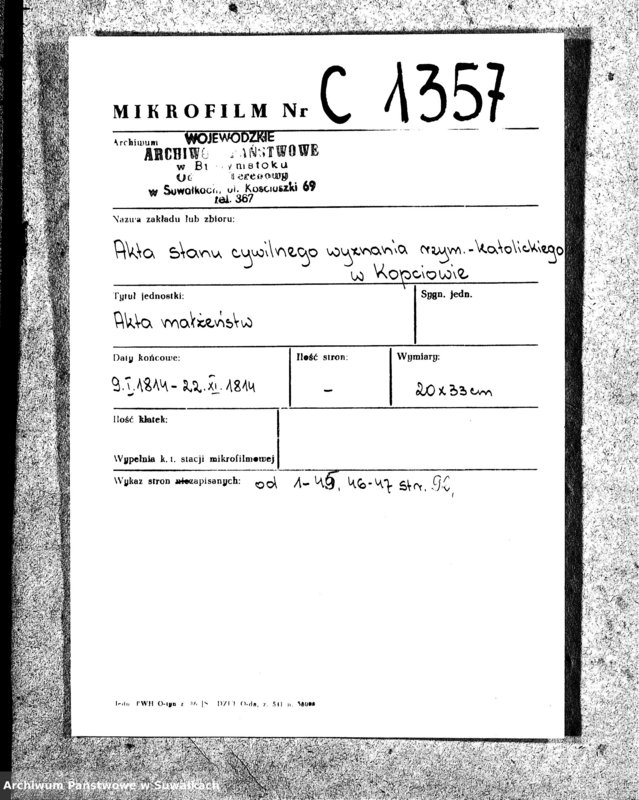 MIKROFILM Nr C 1357
Archiwum WOJEWÓDZKIE
ARCHIWUM PAŃSTWOWE
w Białymstoku
Oddział Terenowy
w Suwałkach, ul. Kościuszki 69
tel. 367
Nazwa zakładu lub zbioru:
Akta stanu cywilnego wyznania rzym.-katolickiego
w Kopciowie
Tytuł jednostki:
Sygn. jedn.
Akta małżeństw
Daty końcowe:
Ilość stron:
Wymiary:
9.I.1814 - 22.XI.1814
-
20x33cm
Ilość klatek:
Wypełnia k. t. stacji mikrofilmowej
Wykaz stron niezapisanych: od 1-45, 46-47 str.
Archiwum Państwowe w Suwałkach